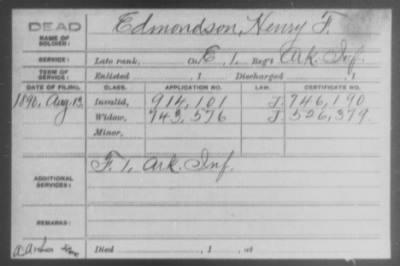 DEAD
NAME OF SOLDIER: Edmondson, Henry F.
SERVICE: Late rank, Co. E, 1, Reg't Ark. Inf.
TERM OF SERVICE: Enlisted , 1 Discharged , 1
DATE OF FILING. CLASS. APPLICATION NO. LAW. CERTIFICATE NO.
1890, Aug. 13 Invalid, 914,101 J. 746,190
Widow, 743,576 J. 526,379
Minor,
ADDITIONAL SERVICES: F. 1, Ark. Inf.
REMARKS:
Died , 1 , at